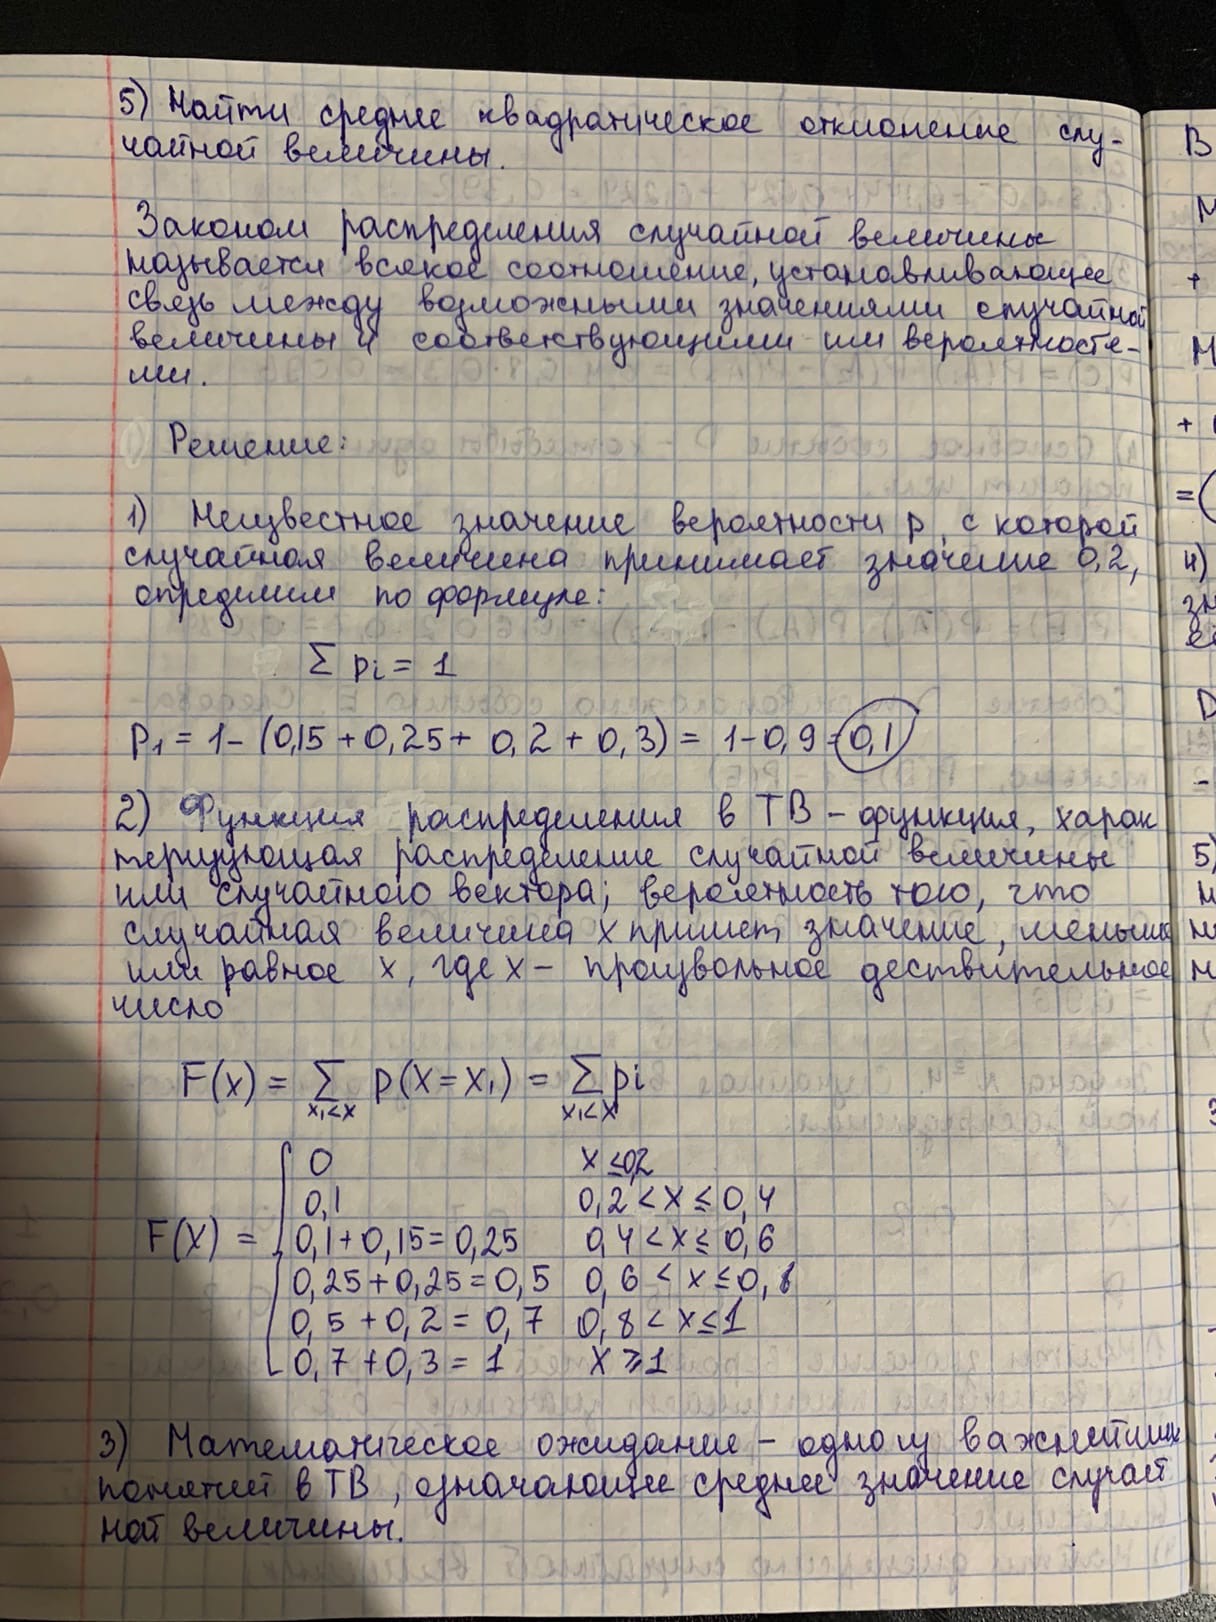 5) Найти среднее квадратическое отклонение слу-
чайной величины.
Законом распределения случайной величины
называется всякое соотношение, устанавливающее
связь между возможными значениями случайной
величины и соответствующими им вероятностя-
ми.
Решение:
1) Неизвестное значение вероятности p, с которой
случайная величина принимает значение 0,2,
определим по формуле:
∑ pi = 1
P1 = 1 - (0,15 + 0,25 + 0,2 + 0,3) = 1 - 0,9 = 0,1
2) Функция распределения в ТВ - функция, харак
теризующая распределение случайной величины
или случайного вектора; вероятность того, что
случайная величина X примет значение, меньшее
или равное x, где x - произвольное дествительное
число
F(x) = ∑ p(X = x₁) = ∑ pi
x₁<x x₁<x
0 x ≤ 0,2
0,1 0,2 < x ≤ 0,4
F(X) = 0,1 + 0,15 = 0,25 0,4 < x ≤ 0,6
0,25 + 0,25 = 0,5 0,6 < x ≤ 0,8
0,5 + 0,2 = 0,7 0,8 < x ≤ 1
0,7 + 0,3 = 1 x ⩾ 1
3) Математическое ожидание - одно из важнейших
понятий в ТВ, означающее среднее значение случай
ной величины.
В
+
+
= (
4)
5)